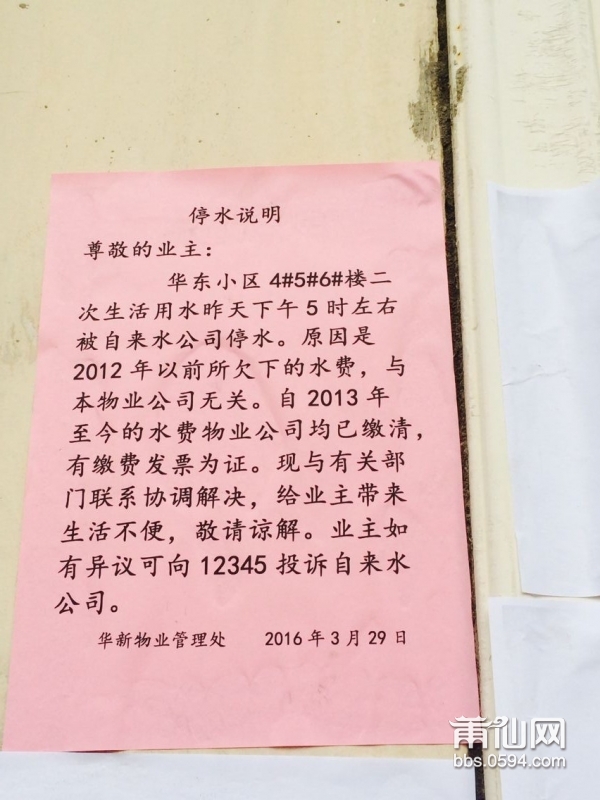 停水说明
尊敬的业主：
华东小区 4#5#6#楼二
次生活用水昨天下午 5 时左右
被自来水公司停水。原因是
2012 年以前所欠下的水费，与
本物业公司无关。自 2013 年
至今的水费物业公司均已缴清，
有缴费发票为证。现与有关部
门联系协调解决，给业主带来
生活不便，敬请谅解。业主如
有异议可向 12345 投诉自来水
公司。
华新物业管理处 2016 年 3 月 29 日
莆仙网
bbs.0594.com